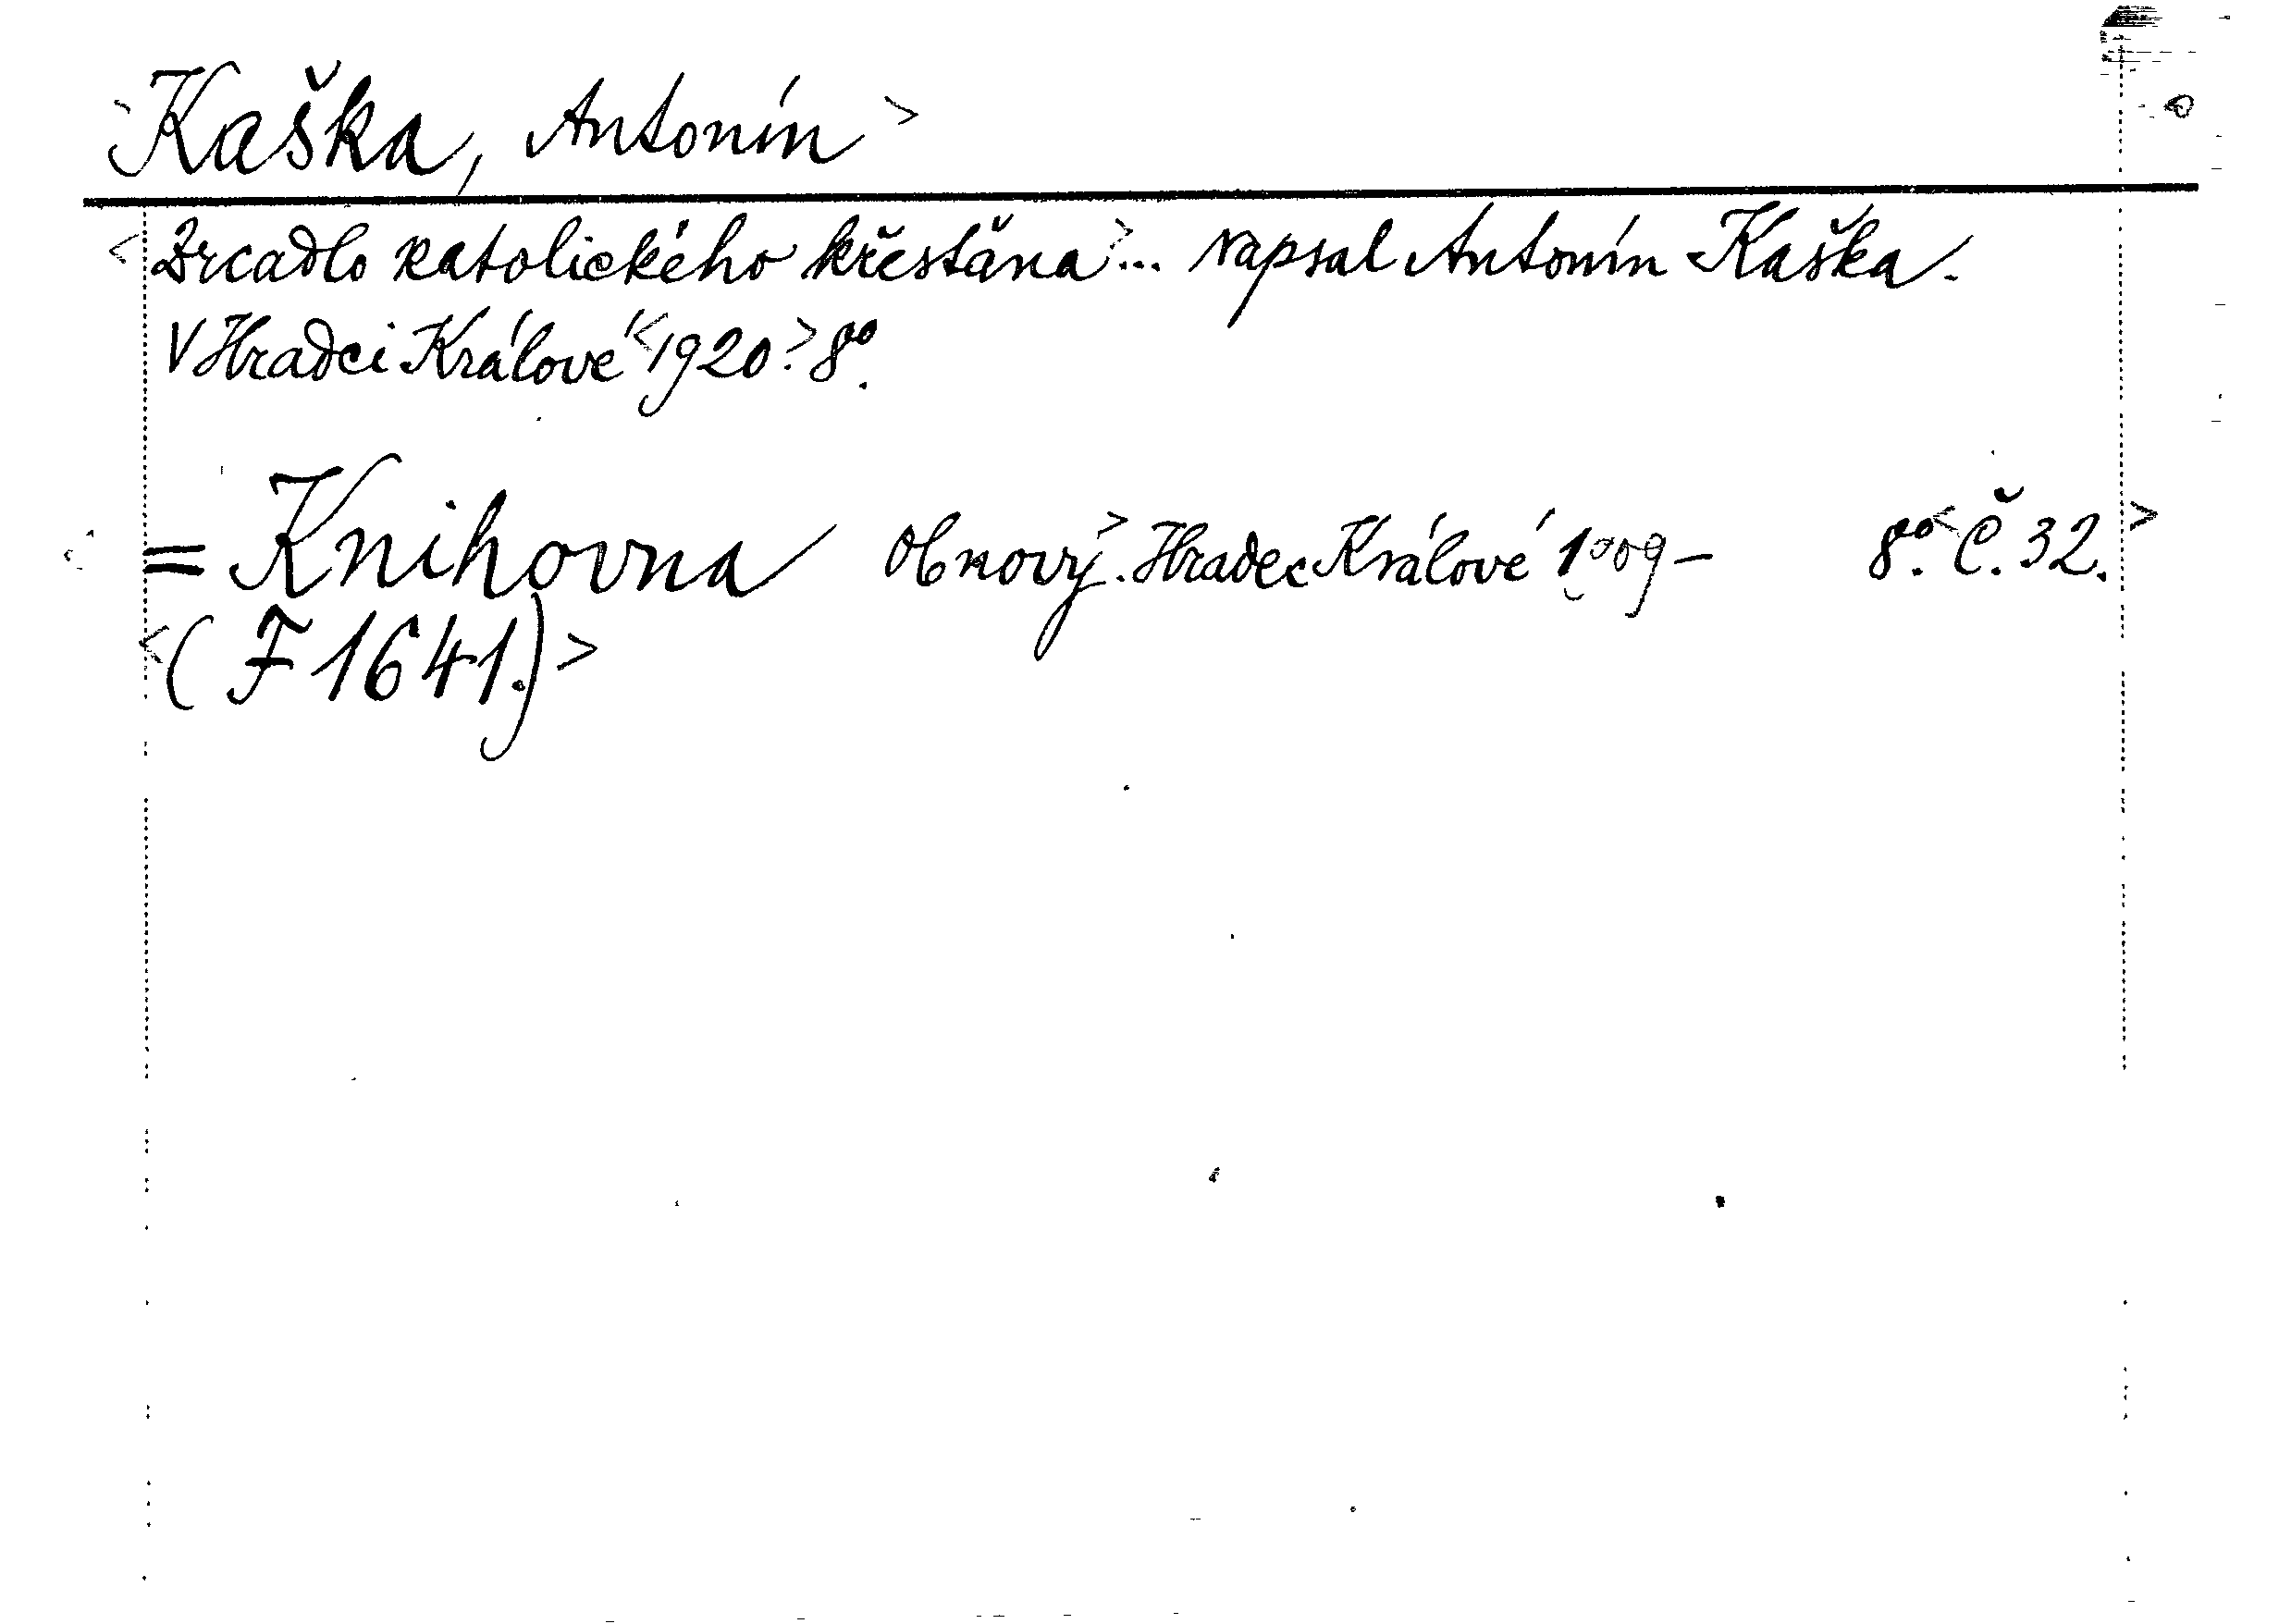 <Kaška, Antonín>
<Zrcadlo katolického křesťana>... napsal Antonín Kaška.
V Hradci Králové <1920> 8º.
<= Knihovna Obnovy>. Hradec Králové 1909 – 8º. <Č. 32.>
<(F 1641.)>